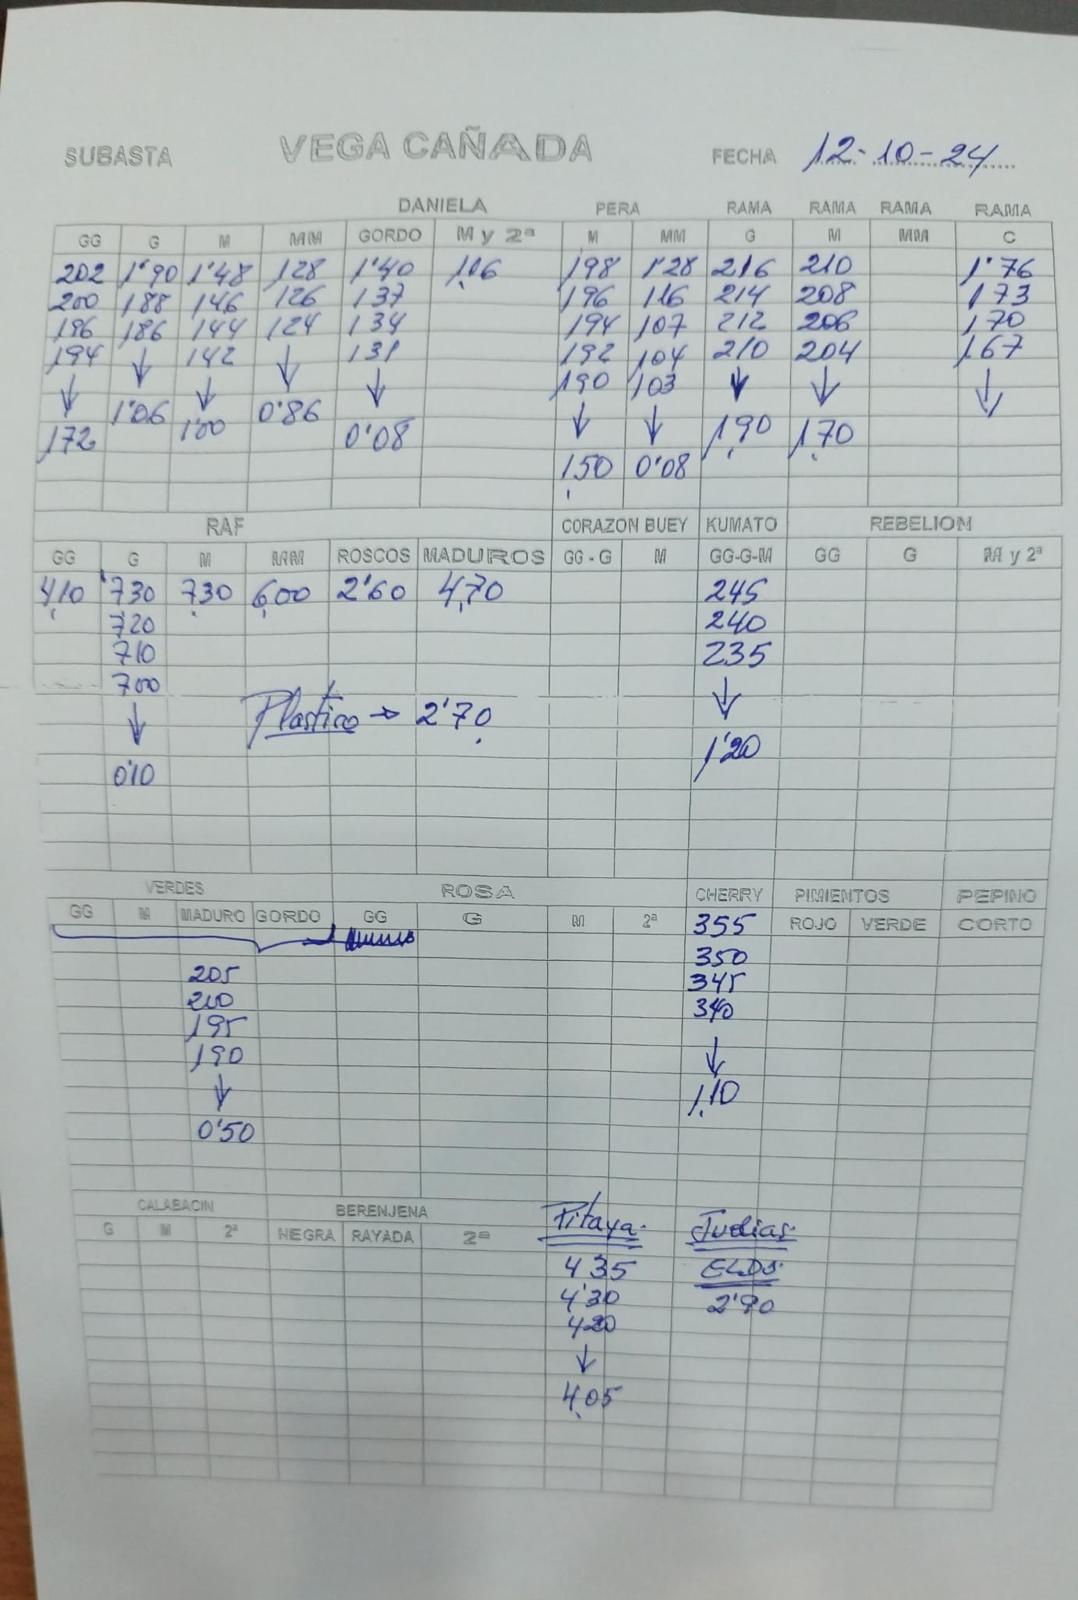 SUBASTA VEGA CAÑADA FECHA 12-10-24
DANIELA PERA RAMA RAMA RAMA RAMA
GG G M MM GORDO M y 2ª M MM G M MM C
202 1'90 1'48 128 1'40 1.06 198 1'28 216 210 1'76
200 188 146 126 137 196 116 214 208 173
196 186 144 124 134 194 107 212 206 170
194 ↓ 142 ↓ 131 192 104 210 204 167
↓ ↓ ↓ 190 103 ↓ ↓ ↓
1'06 0'86 ↓ ↓
172 1'00 0'08 1,90 1,70
1,50 0'08
RAF CORAZON BUEY KUMATO REBELIOM
GG G M MM ROSCOS MADUROS GG - G M GG-G-M GG G M y 2ª
4,10 7'30 7,30 6,00 2'60 4,70 245
7'20 240
710 235
700 ↓
Plastico → 2'70
↓ 1'20
0'10
VERDES ROSA CHERRY PIMIENTOS PEPINO
GG M MADURO GORDO GG G M 2ª 355 ROJO VERDE CORTO
350
205 345
200 340
195
190 ↓
↓ 1,10
0'50
CALABACIN BERENJENA Pitaya. Judias.
G M 2ª NEGRA RAYADA 2ª
435 ELDS.
4'30 2'90
420
↓
4,05